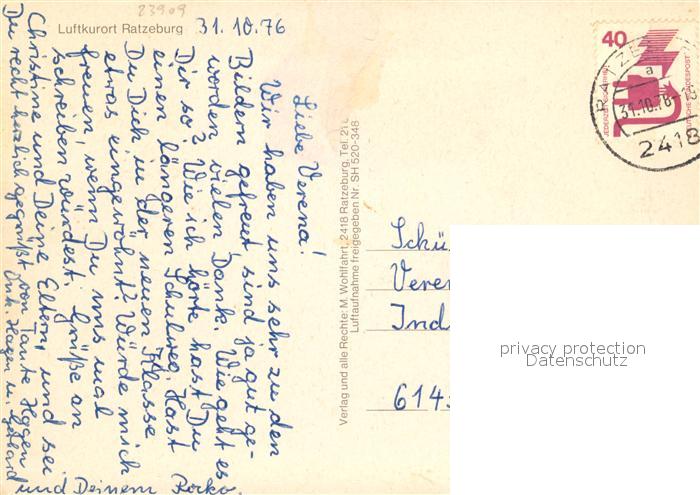 23909
Luftkurort Ratzeburg
31.10.76
Liebe Verena!
Wir haben uns sehr zu den
Bildern gefreut, sind ja gut ge-
worden, vielen Dank. Wie geht es
Dir so? Wie ich hörte hast Du
einen längeren Schulweg. Hast
Du Dich in der neuen Klasse
etwas eingewöhnt? Würde mich
freuen, wenn Du uns mal
schreiben würdest. Grüße an
Christine und Deine Eltern, und sei
Du recht herzlich gegrüßt von Tante Hagen
Onk. Hagen u. Gebbard
und Deinem Rocko.
Verlag und alle Rechte: M. Wohlfahrt, 2418 Ratzeburg, Tel. 21
Luftaufnahme freigegeben Nr. SH 520-348
40
JEDERZEIT SICHERHEIT
DEUTSCHE BUNDESPOST
a
31.10.76-13
2418
Schü
Veren
Ind
614
privacy protection
Datenschutz